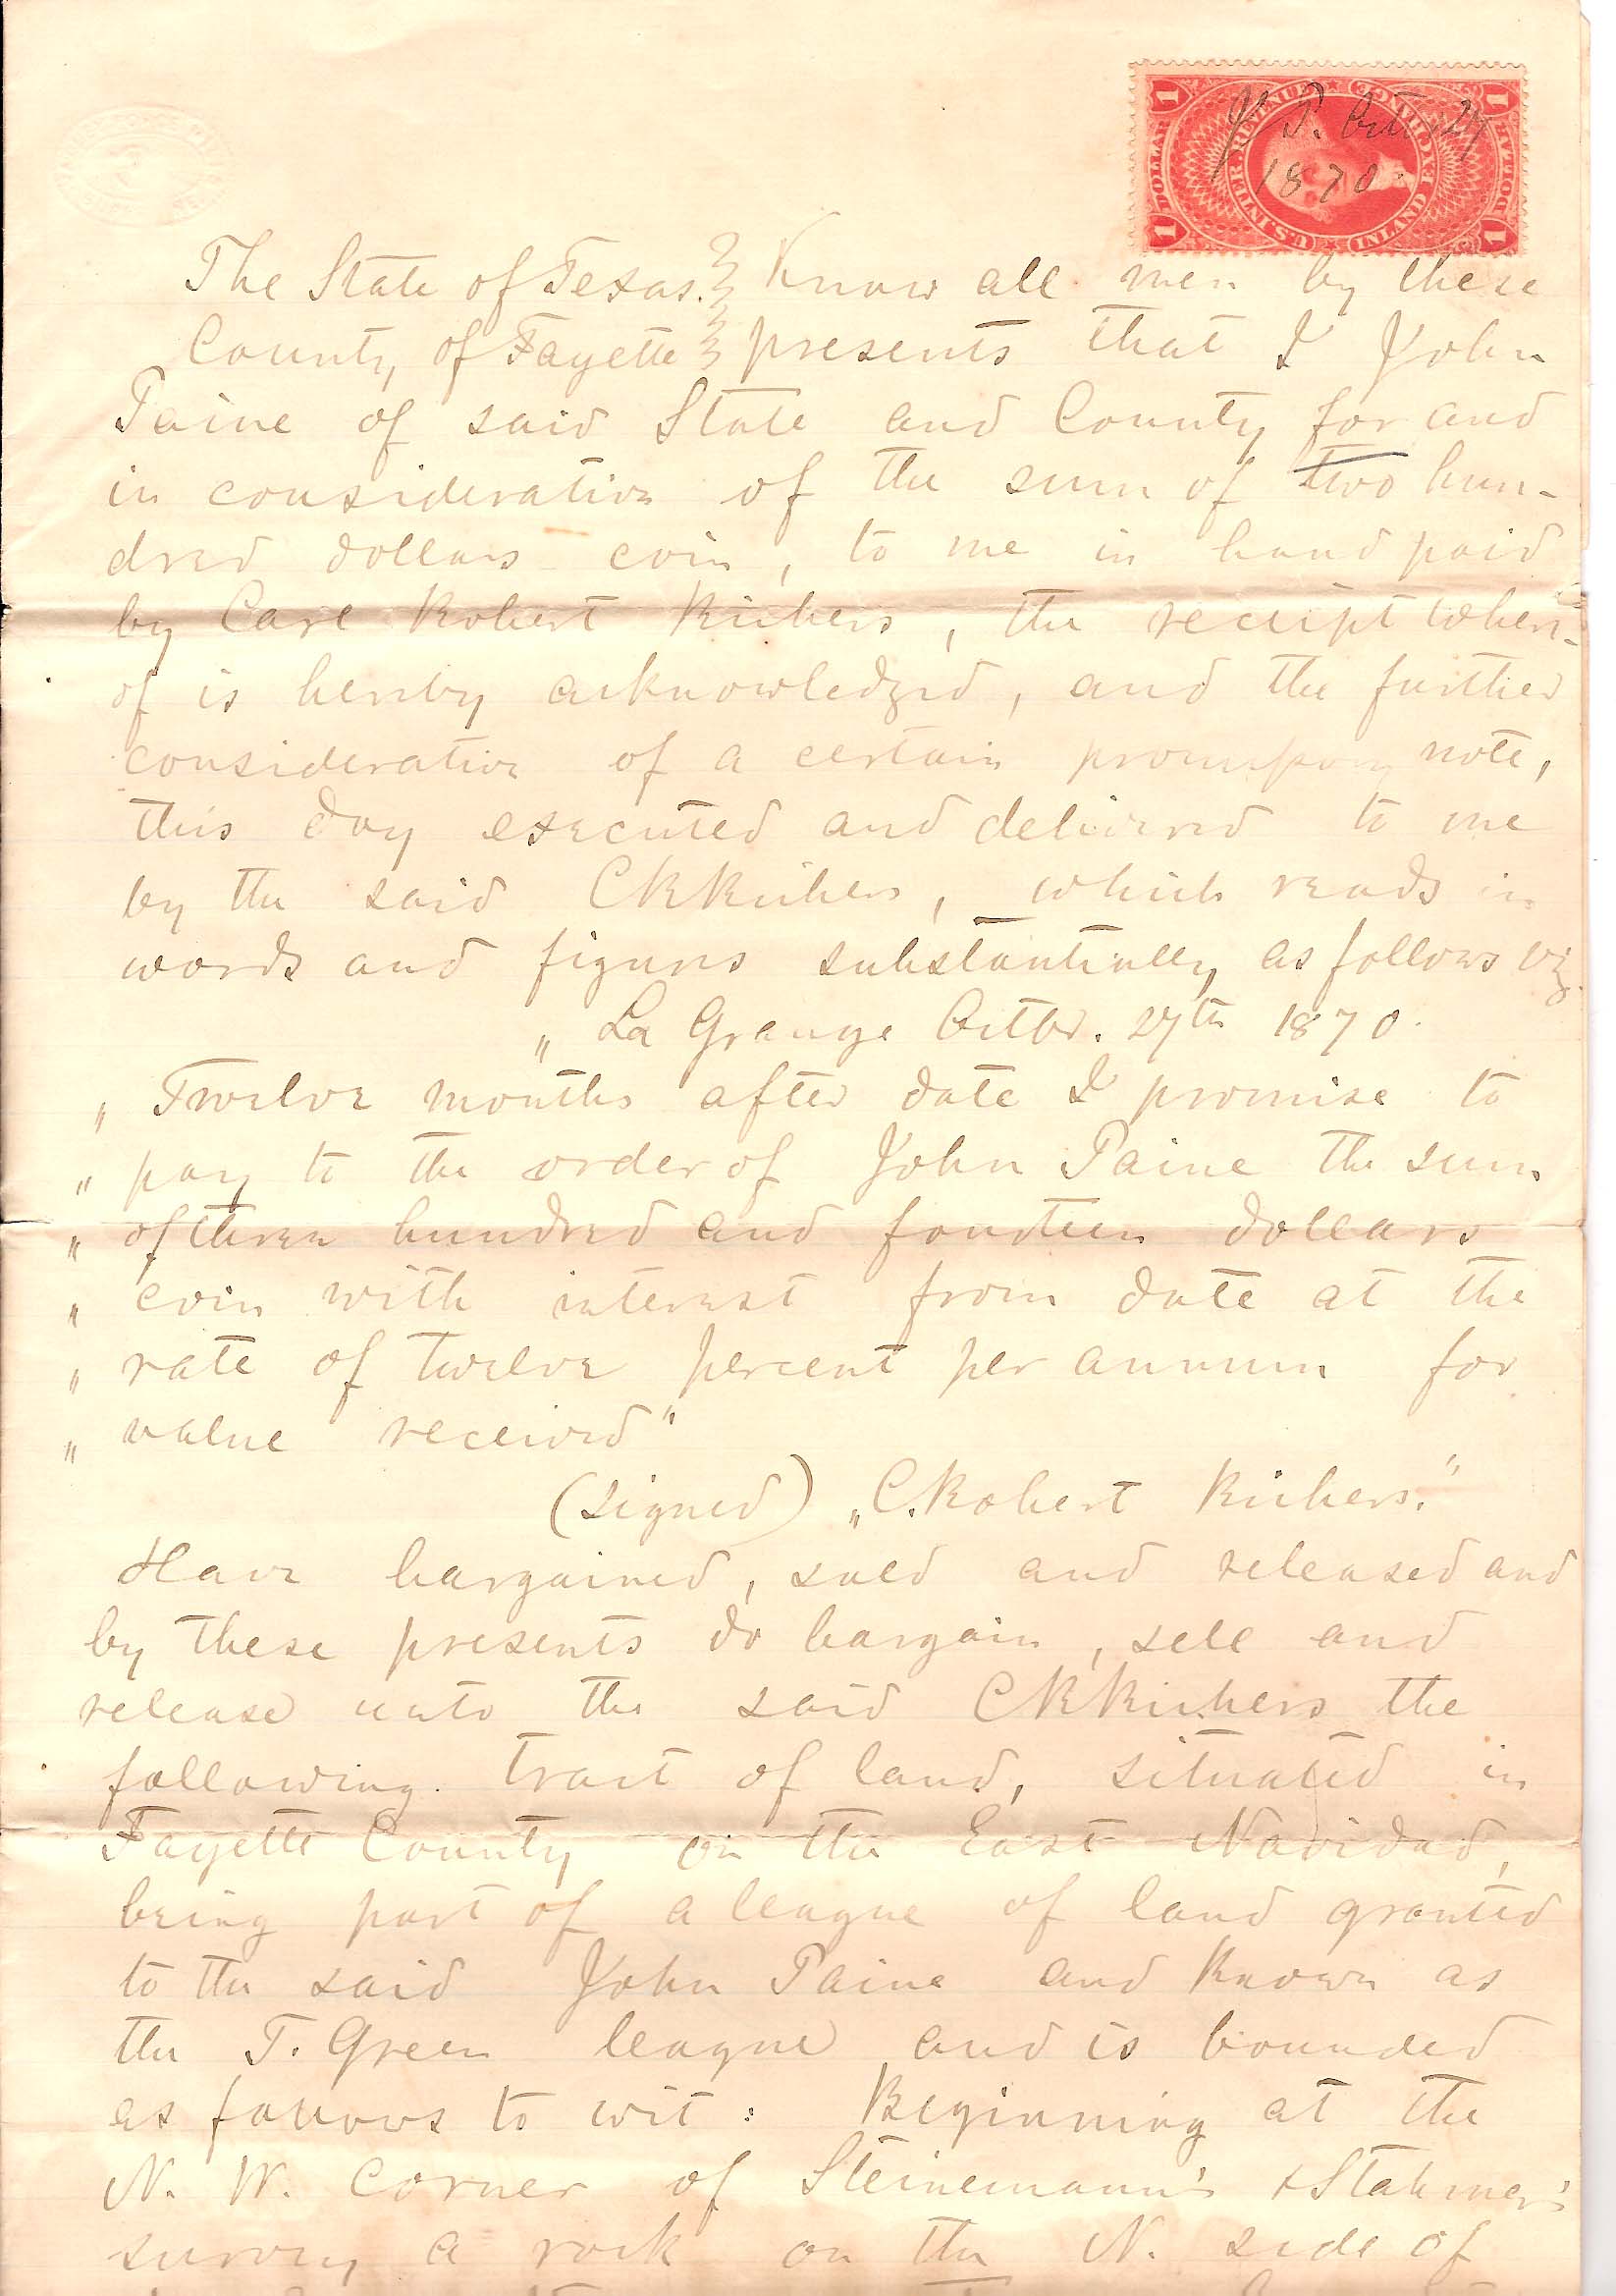 J P. Octbr 27
1870.
1 DOLLAR 1
U.S. INTER. REVENUE
INLAND EXCHANGE
1 DOLLAR 1
The State of Texas. } Know all men by these
County of Fayette } presents that I John
Paine of said State and County for and
in consideration of the sum of two hun-
dred dollars coin, to me in hand paid
by Carl Robert Richers, the receipt where-
of is hereby acknowledged, and the further
consideration of a certain promissory note,
this day executed and delivered to me
by the said CRRichers, which reads in
words and figures substantially as follows viz.
„ La Grange Octbr. 27th 1870.
„ Twelve months after date I promise to
„ pay to the order of John Paine the sum
„ of three hundred and fourteen dollars
„ coin with interest from date at the
„ rate of twelve percent per annum for
„ value received"
(signed) „C.Robert Richers."
Have bargained, sold and released and
by these presents do bargain, sell and
release unto the said CRRichers the
following tract of land, situated in
Fayette County on the East Navidad,
being part of a league of land granted
to the said John Paine and known as
the T. Green league and is bounded
as follows to wit: Beginning at the
N. W. corner of Steinemann's & Stahmer's
survey a rock on the N. side of